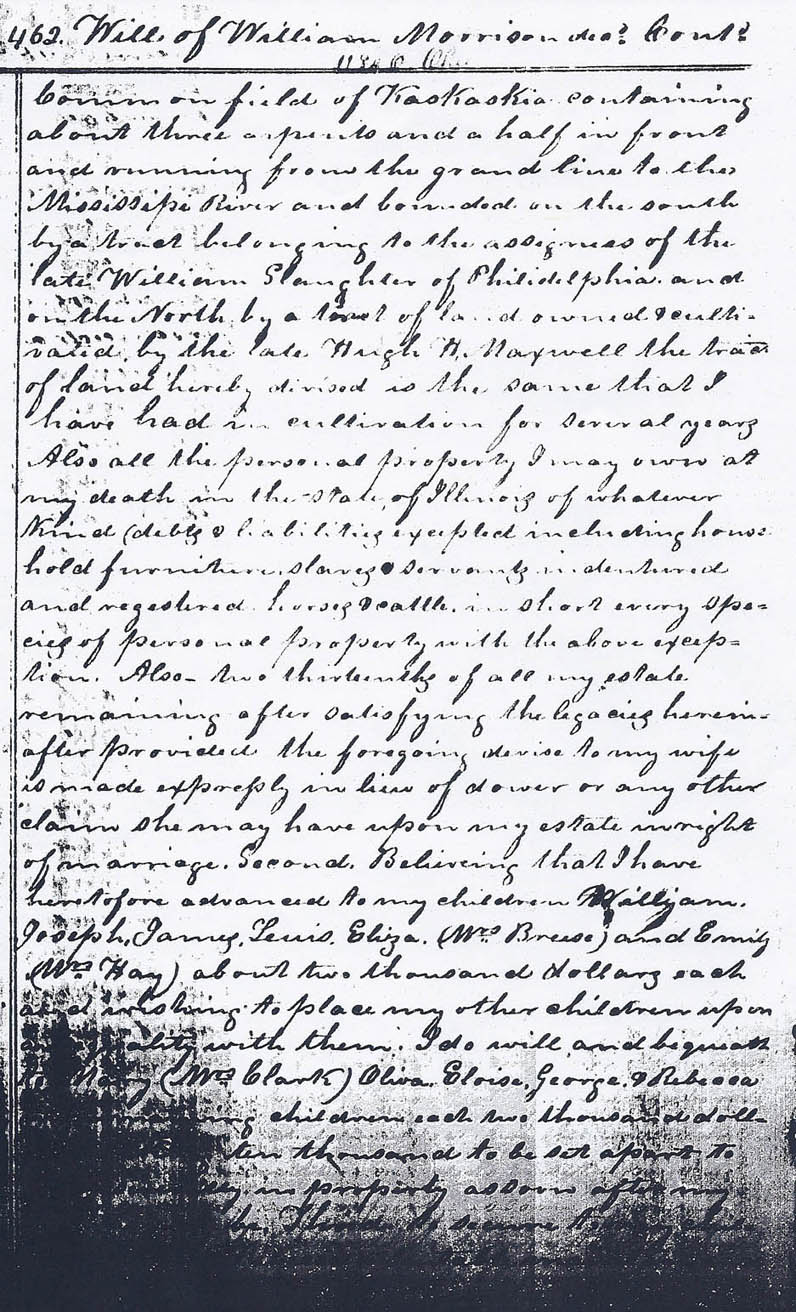 462. Will of William Morrison decd Contd
Common field of Kaskaskia containing
about three arpents and a half in front
and running from the grand line to the
Mississipi River and bounded on the south
by a tract belonging to the assignes of the
late William Slaughter of Philidelphia and
on the North by a tract of land owned & culti-
vated by the late Hugh H. Maxwell the tract
of land hereby divised is the same that I
have had in cultivation for several years
Also all the personal property I may own at
my death in the state of Illinois of whatever
Kind (debts & liabilities excepted including hous=
hold furniture slaves & servants indentured
and regestered horses & cattle in short every spe=
cies of personal property with the above excep=
tion. Also - two thirteenths of all my estate
remaining after satisfying the legacies herein=
after provided the foregoing devise to my wife
is made expressly in lieu of dower or any other
claim she may have upon my estate in right
of marriage. Second. Believing that I have
heretofore advanced to my children William.
Joseph, James, Lewis, Eliza. (Mrs Breese) and Emily
(Mrs Hay) about two thousand dollars each
and wishing to place my other children upon
with them. I do will and bequeath
(Mrs Clark) Oliva. Eloise, George, & Rebecca
children each two thousand doll-
ten thousand to be set apart to
in property as soon after my